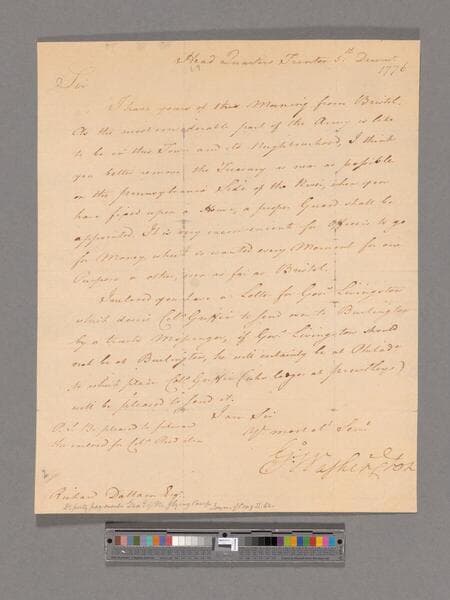 Head Quarters Trenton 5th Decemr
1776
Sir
I have yours of this Morning from Bristol.
As the most considerable part of the Army is like
to be in this Town and its Neighbourhood, I think
you better remove the Treasury as near as possible
on the Pennsylvania Side of the River, when you
have fixed upon a House, a proper Guard shall be
appointed. It is very inconvenient for Officers to go
for Money, which is wanted every Moment for one
Purpose or other, even as far as Bristol.
Inclosed you have a Letter for Govr Livingston
which desire Colo Griffin to send over to Burlington
by a trusty Messenger, if Govr Livingston should
not be at Burlington, he will certainly be at Philada
to which place Colo Griffin (who lodges at
will be pleased to send it.
I am Sir
P.S. Be pleased to forward
the inclosed for Colo Reed also
Yr most obt Servt
Go Washington
Richard Dallam Esqr
Deputy paymaster Genl of the flying Camp